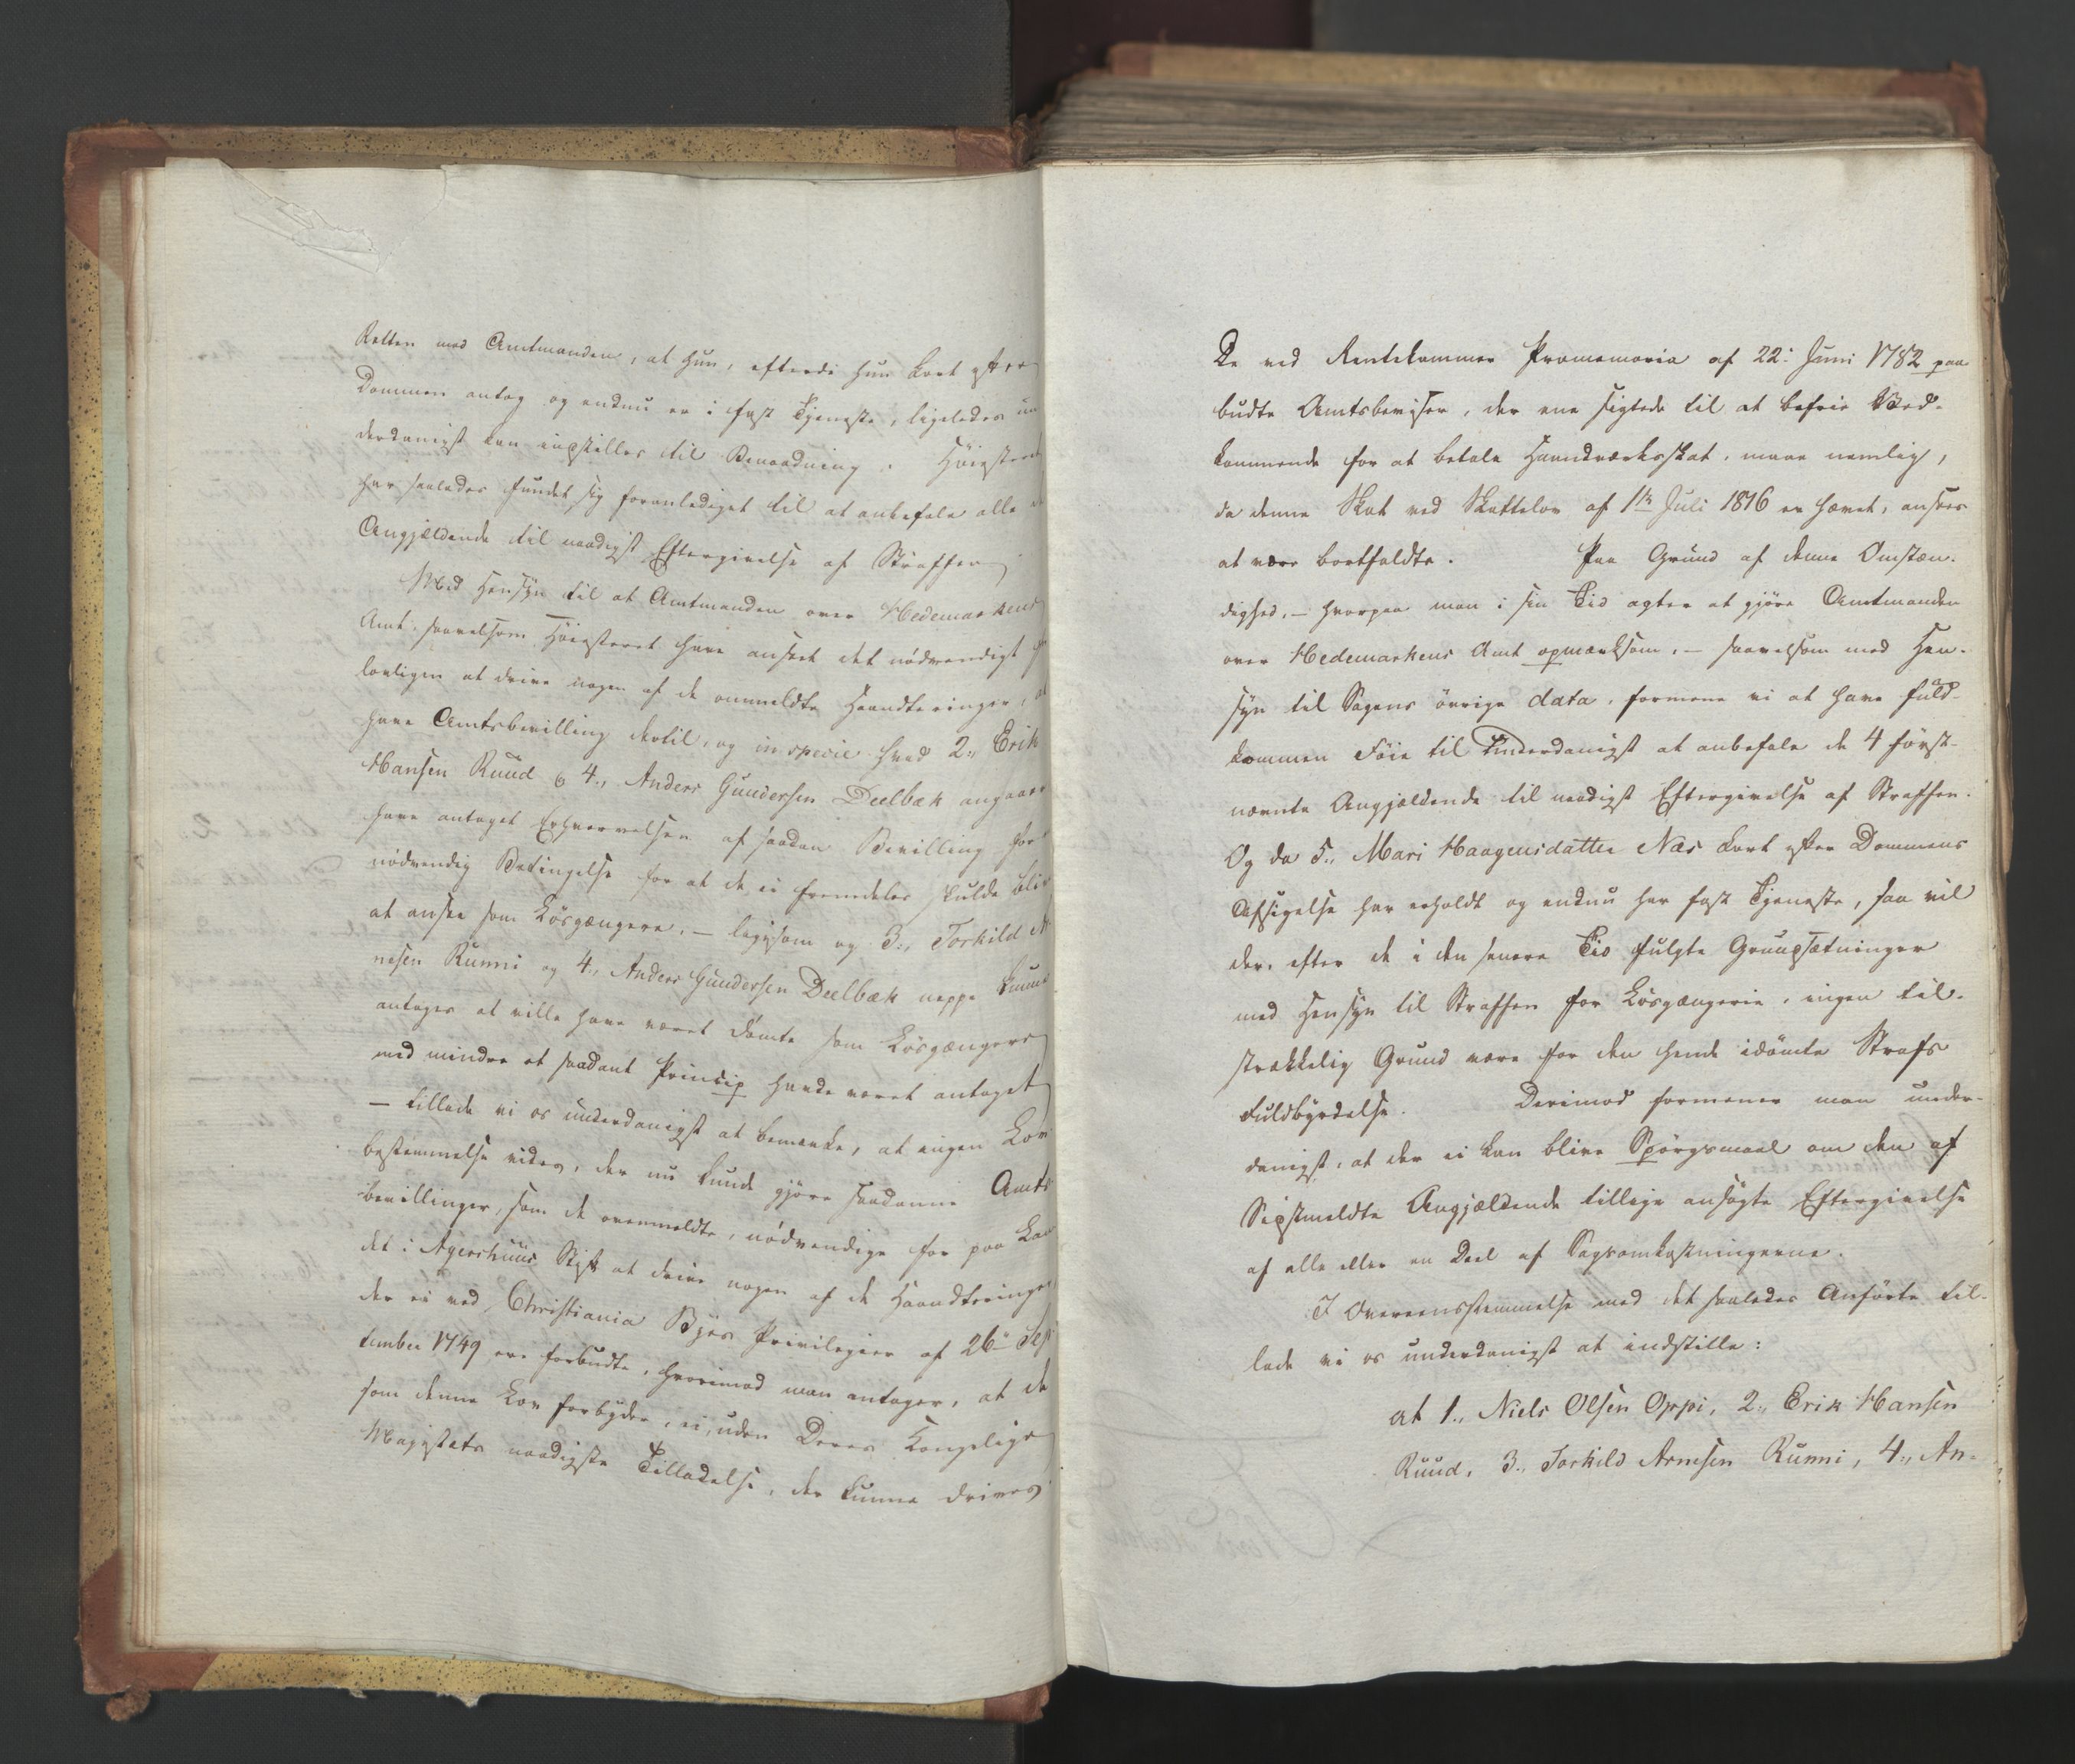 Retten med Amtmanden, at hun, efterdi hun kort efter
Dommen antog og endnu er i fast Tjeneste, ligeledes un
derdanigst kan indstilles til Benaadning. Høiesteret
har saaledes fundet sig foranlediget til at anbefale alle
Angjældende til naadigst Eftergivelse af Straffen
Med Hensyn til at Amtmanden over Hedemarkens
Amt saavelsom Høiesteret have anseet det nødvendigt for
lovligen at drive nogen af de ommeldte Haandteringer, at
have Amtsbevilling dertil, og in specie hvad 2., Erik
Hansen Ruud og 4., Anders Gundersen Deelbæk angaaer
have antaget Erhvervelsen af saadan Bevilling for
nødvendig Betingelse for at de ei fremdeles skulde bliv
at ansee som Løsgængere, – ligesom og 3., Torkild Ar
nesen Runni og 4., Anders Gundersen Deelbæk neppe kunne
antages at ville have været dømte som Løsgængere
med mindre et saadant Princip havde været antaget
– tillade vi os underdanigst at bemærke, at ingen Lov
bestemmelse vides, der nu kunde gjøre saadanne Amts
bevillinger, som de ovenmeldte, nødvendige for paa Lan
det i Agershuus Stift at drive nogen af de Haandteringer,
der ei ved Christiania Byes Privilegier af 26de Sep
tember 1749 ere forbudte, hvorimod man antager, at de
som denne Lov forbyder, ei, uden Deres Kongelige
Majestæts naadigste Tilladelse, der kunne drives
De ved Rentekammer Promemoria af 22: Juni 1782 paa
budte Amtsbeviser, der ene sigtede til at befrie Ved-
kommende for at betale Haandværksskat, maae nemlig,
da denne Skat ved Skattelov af 1ste Juli 1816 er hævet, ansees
at være bortfaldte. Paa Grund af denne Omstæn-
dighed, – hvorpaa man i sin Tid agter at gjøre Amtmanden
over Hedemarkens Amt opmærksom, – saavelsom med Hen-
syn til Sagens øvrige data, formene vi at have fuld-
kommen Føie til underdanigst at anbefale de 4 først-
nævnte Angjældende til naadigst Eftergivelse af Straffen.
Og da 5., Mari Haagensdatter Næs kort efter Dommens
Afsigelse har erholdt og endnu har fast Tjeneste, saa vil
der, efter de i den senere Tid fulgte Grundsætninger
med Hensyn til Straffen for Løsgængerie, ingen til-
strækkelig Grund være for den hende idømte Strafs
Fuldbyrdelse. Derimod formener man under-
danigst, at der ei kan blive Spørgsmaal om den af
Sidstmeldte Angjældende tillige ansøgte Eftergivelse
af alle eller en Deel af Sagsomkostningerne.
I Overeensstemmelse med det saaledes Anførte til-
lade vi os underdanigst at indstille:
at 1., Niels Olsen Oppi, 2., Erik Hansen
Ruud, 3., Torkild Arnesen Runni, 4., An-